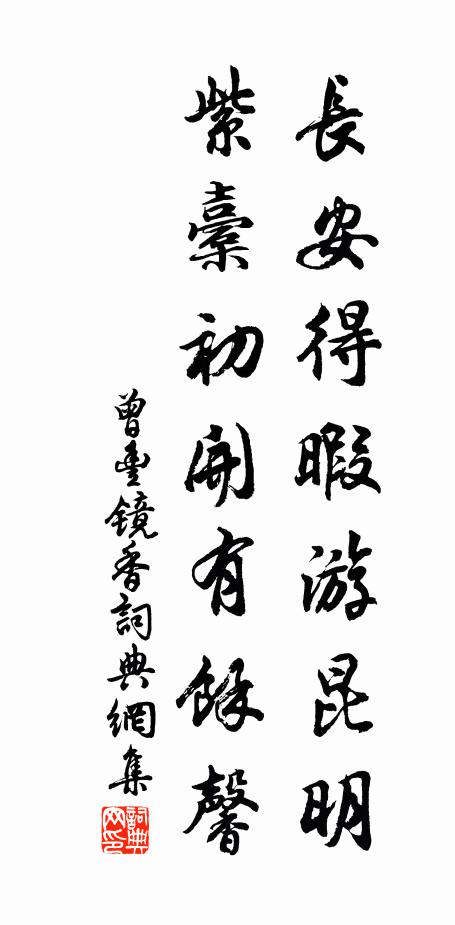 長安得暇游昆明
紫橐初開有餘馨
曾豐鏡香詞典網集
詞典網印